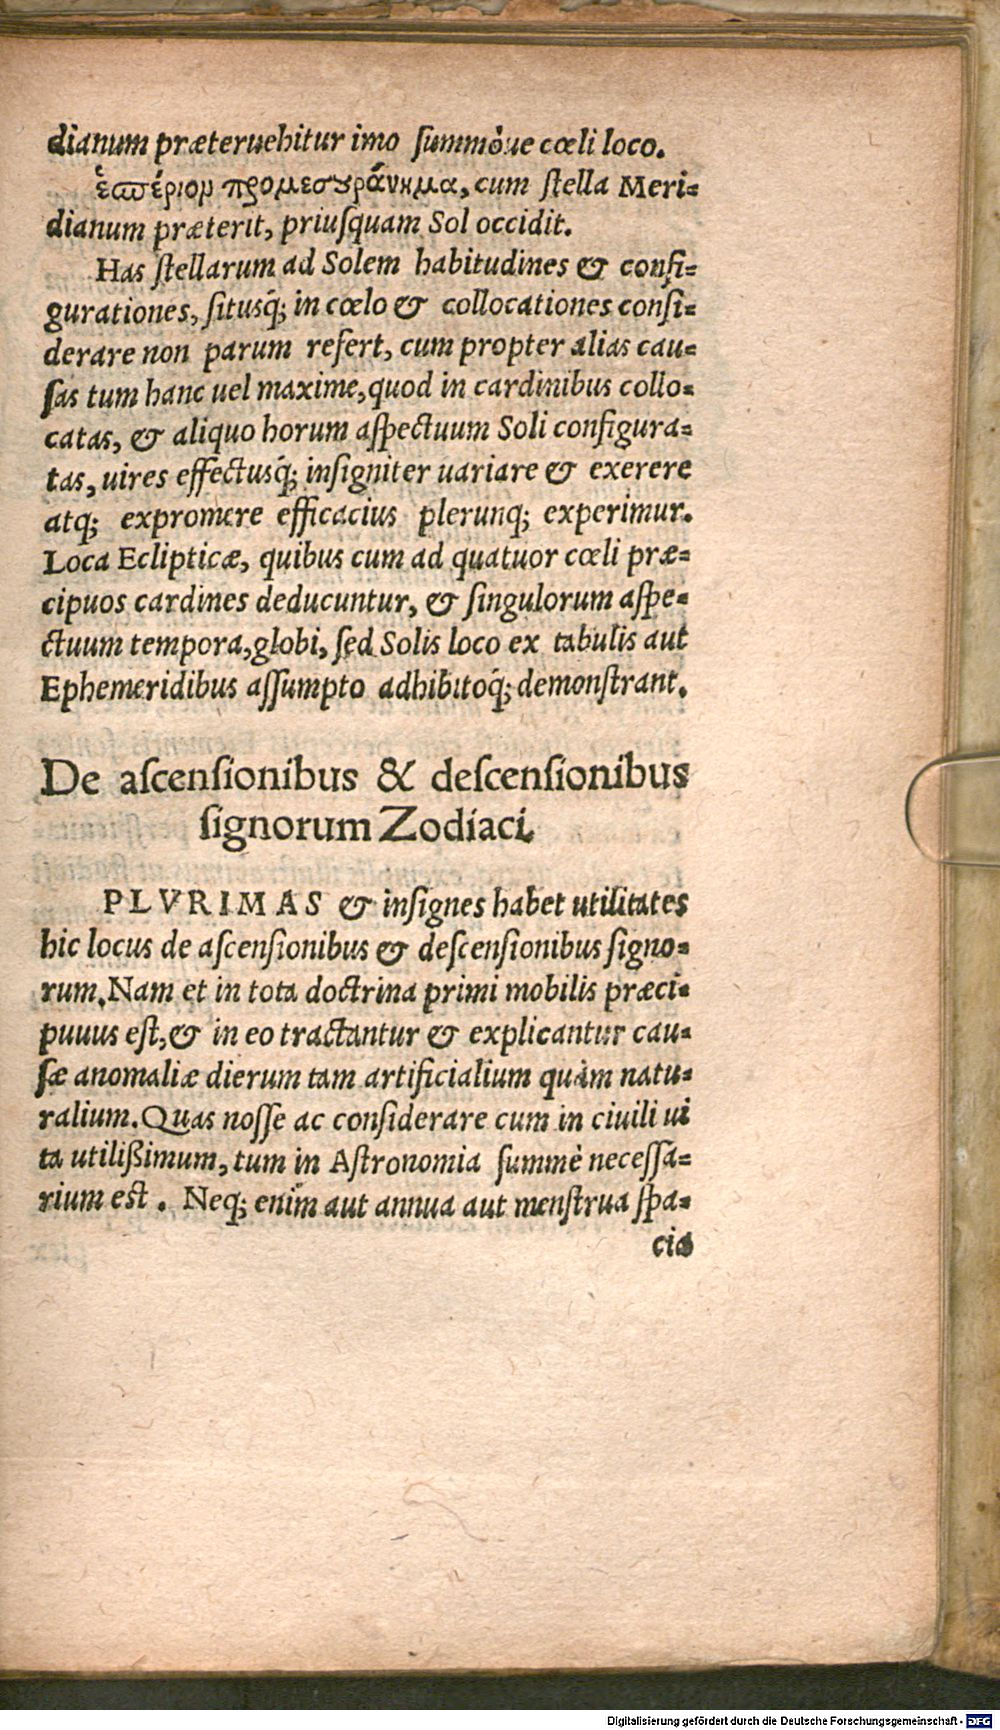 dianum præteruehitur imo ſummóue cœli loco.
ἑσπέριον προμεσουράνημα, cum ſtella Meri-
dianum præterit, priuſquam Sol occidit.
Has ſtellarum ad Solem habitudines & confi-
gurationes, ſitusq́; in cœlo & collocationes conſi-
derare non parum refert, cum propter alias cau-
ſas tum hanc uel maxime, quod in cardinibus collo-
catas, & aliquo horum aſpectuum Soli configura-
tas, uires effectusq́; inſigniter uariare & exerere
atq; expromere efficacius plerunq; experimur.
Loca Eclipticæ, quibus cum ad quatuor cœli præ-
cipuos cardines deducuntur, & ſingulorum aſpe-
ctuum tempora, globi, ſed Solis loco ex tabulis aut
Ephemeridibus aſſumpto adhibitoq́; demonſtrant.
De aſcenſionibus & deſcenſionibus
ſignorum Zodiaci.
PLVRIMAS & inſignes habet utilitates
hic locus de aſcenſionibus & deſcenſionibus ſigno-
rum. Nam et in tota doctrina primi mobilis præci-
puuus eſt, & in eo tractantur & explicantur cau-
ſæ anomaliæ dierum tam artificialium quàm natu-
ralium. Quas noſſe ac conſiderare cum in ciuili ui
ta utilißimum, tum in Aſtronomia ſummè neceſſa-
rium est. Neq; enim aut annua aut menſtrua ſpa-
cia
Digitalisierung gefördert durch die Deutsche Forschungsgemeinschaft - DFG